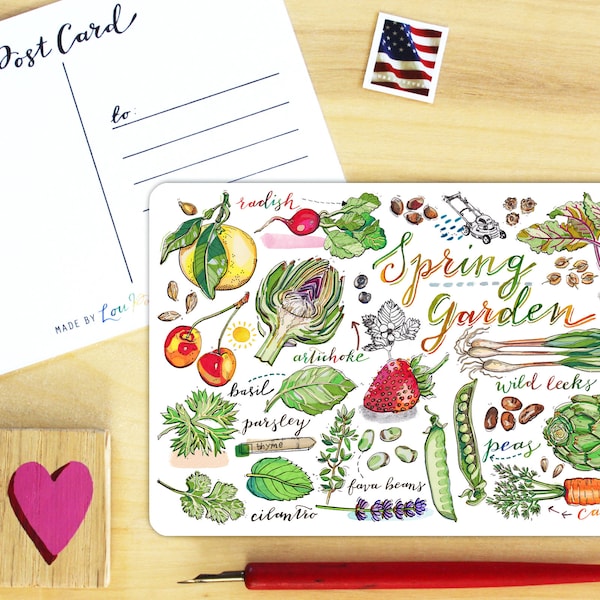 Post Card
to:
MADE BY
radish
Spring
Garden
artichoke
wild leeks
basil
parsley
thyme
peas
fava beans
cilantro